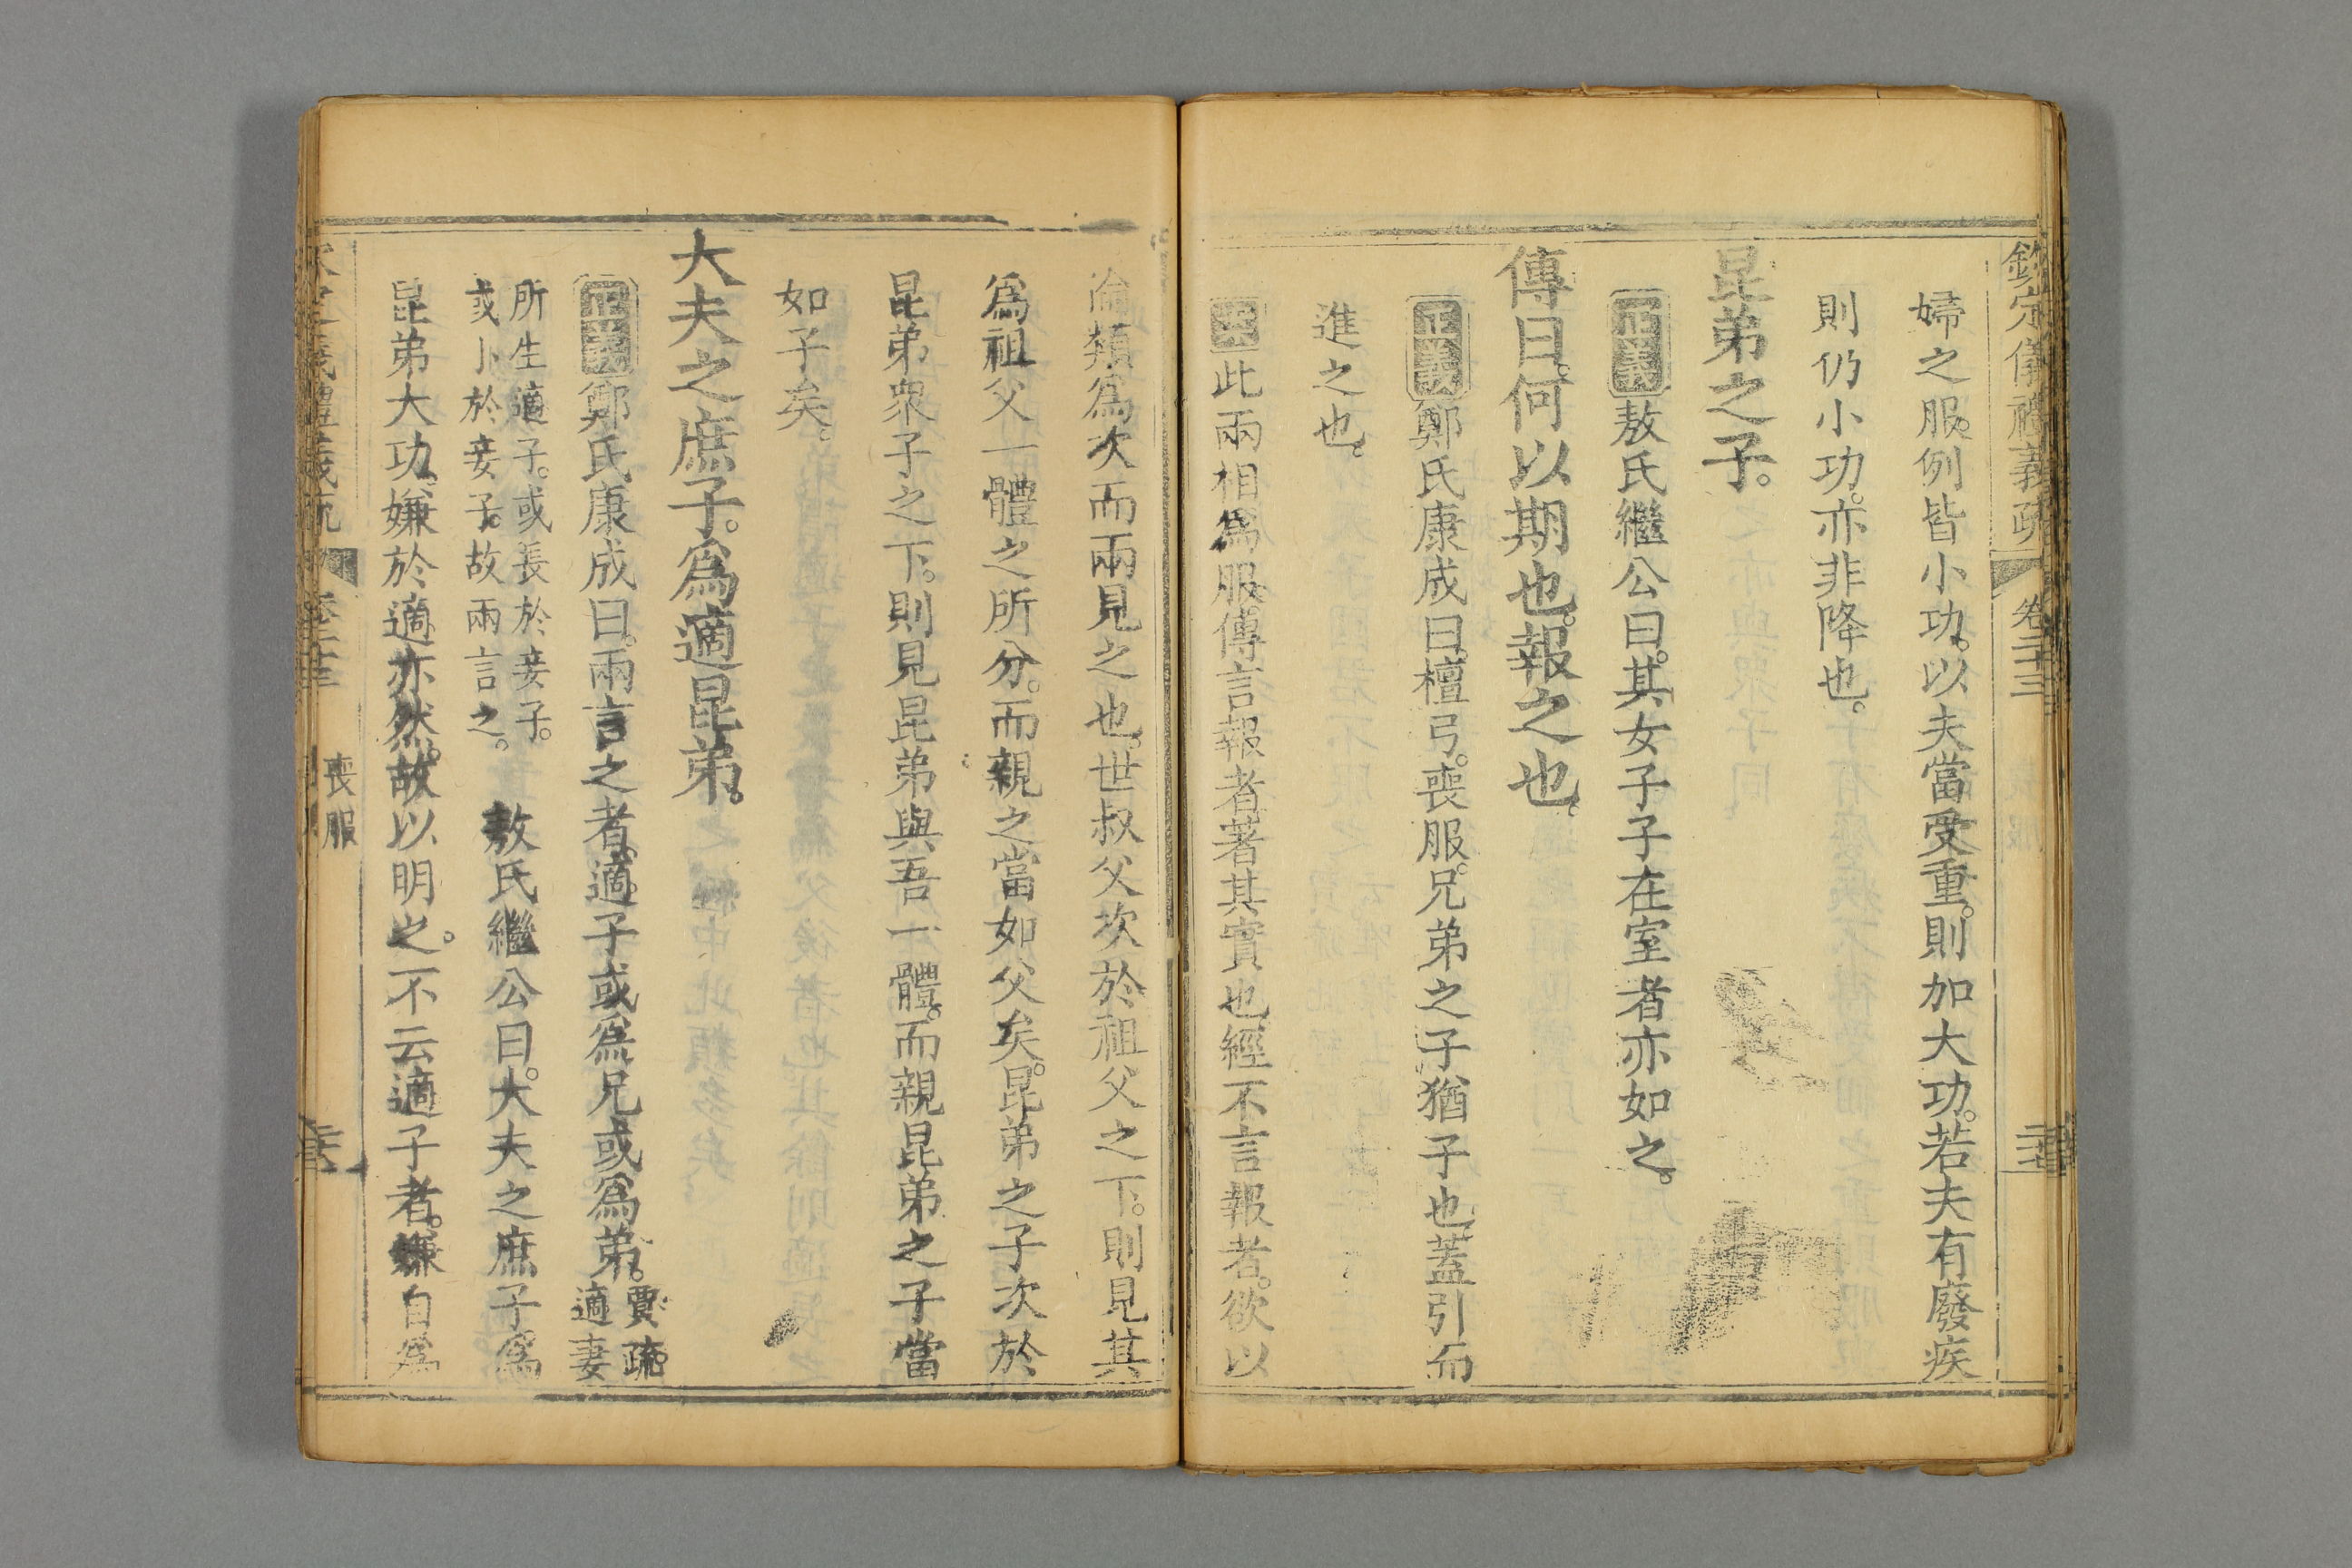 欽定儀禮義疏 卷二十三
婦之服。例皆小功。以夫當受重。則加大功。若夫有廢疾
則仍小功。亦非降也。
昆弟之子。
正義敖氏繼公曰。其女子子在室者亦如之。
傳曰。何以期也。報之也。
正義鄭氏康成曰。檀弓。喪服。兄弟之子猶子也。蓋引而
進之也。
此兩相爲服。傳言報者。著其實也。經不言報者。欲以
倫類爲次而兩見之也。世叔父次於祖父之下。則見其
爲祖父一體之所分。而親之當如父矣。昆弟之子次於
昆弟衆子之下。則見昆弟與吾一體。而親昆弟之子當
如子矣。
大夫之庶子。爲適昆弟。
正義鄭氏康成曰。兩言之者。適子或爲兄或爲弟。賈疏。適妻
所生適子。或長於妾子。
或小於妾子。故兩言之。 敖氏繼公曰。大夫之庶子。爲
昆弟大功。嫌於適亦然。故以明之。不云適子者。嫌自爲
喪服